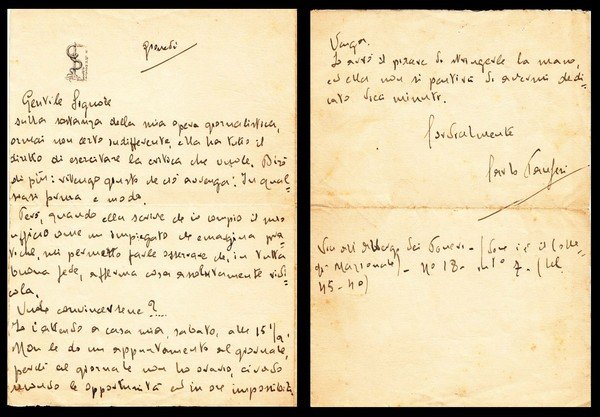 giovedì
Gentile Signore
sulla sostanza della mia opera giornalistica,
ormai non certo indifferente, ella ha tutto il
diritto di esercitare la critica che vuole. Dirò
di più: ritengo giusto che ciò avvenga. In qual-
siasi forma e modo.
Però, quando ella scrive che io compio il mio
ufficio come un impiegato che emargina pra-
tiche, mi permetto farle osservare che, in tutta
buona fede, afferma cosa assolutamente ridi-
cola.
Vuole convincersene?...
Io l'attendo a casa mia, sabato, alle 15 1/2.
Non le do un appuntamento al giornale,
perché al giornale non ho orario, ci vado
secondo le opportunità ed in ore impossibili.
Venga.
Io avrò il piacere di stringerle la mano,
ed ella non si pentirà di avermi dedi-
cato dieci minuti.
Cordialmente
Carlo
Via all'Albergo dei Poveri - (dove c'è il Colle-
gio Nazionale) - N° 18 - int° 7 - (tel.
45-40)